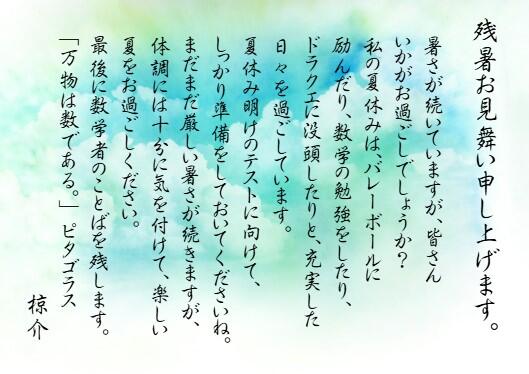 残暑お見舞い申し上げます。
暑さが続いていますが、皆さん
いかがお過ごしでしょうか？
私の夏休みは、バレーボールに
励んだり、数学の勉強をしたり、
ドラクエに没頭したりと、充実した
日々を過ごしています。
夏休み明けのテストに向けて、
しっかり準備をしておいてくださいね。
まだまだ厳しい暑さが続きますが、
体調には十分に気を付けて、楽しい
夏をお過ごしください。
最後に数学者のことばを残します。
「万物は数である。」ピタゴラス
椋介